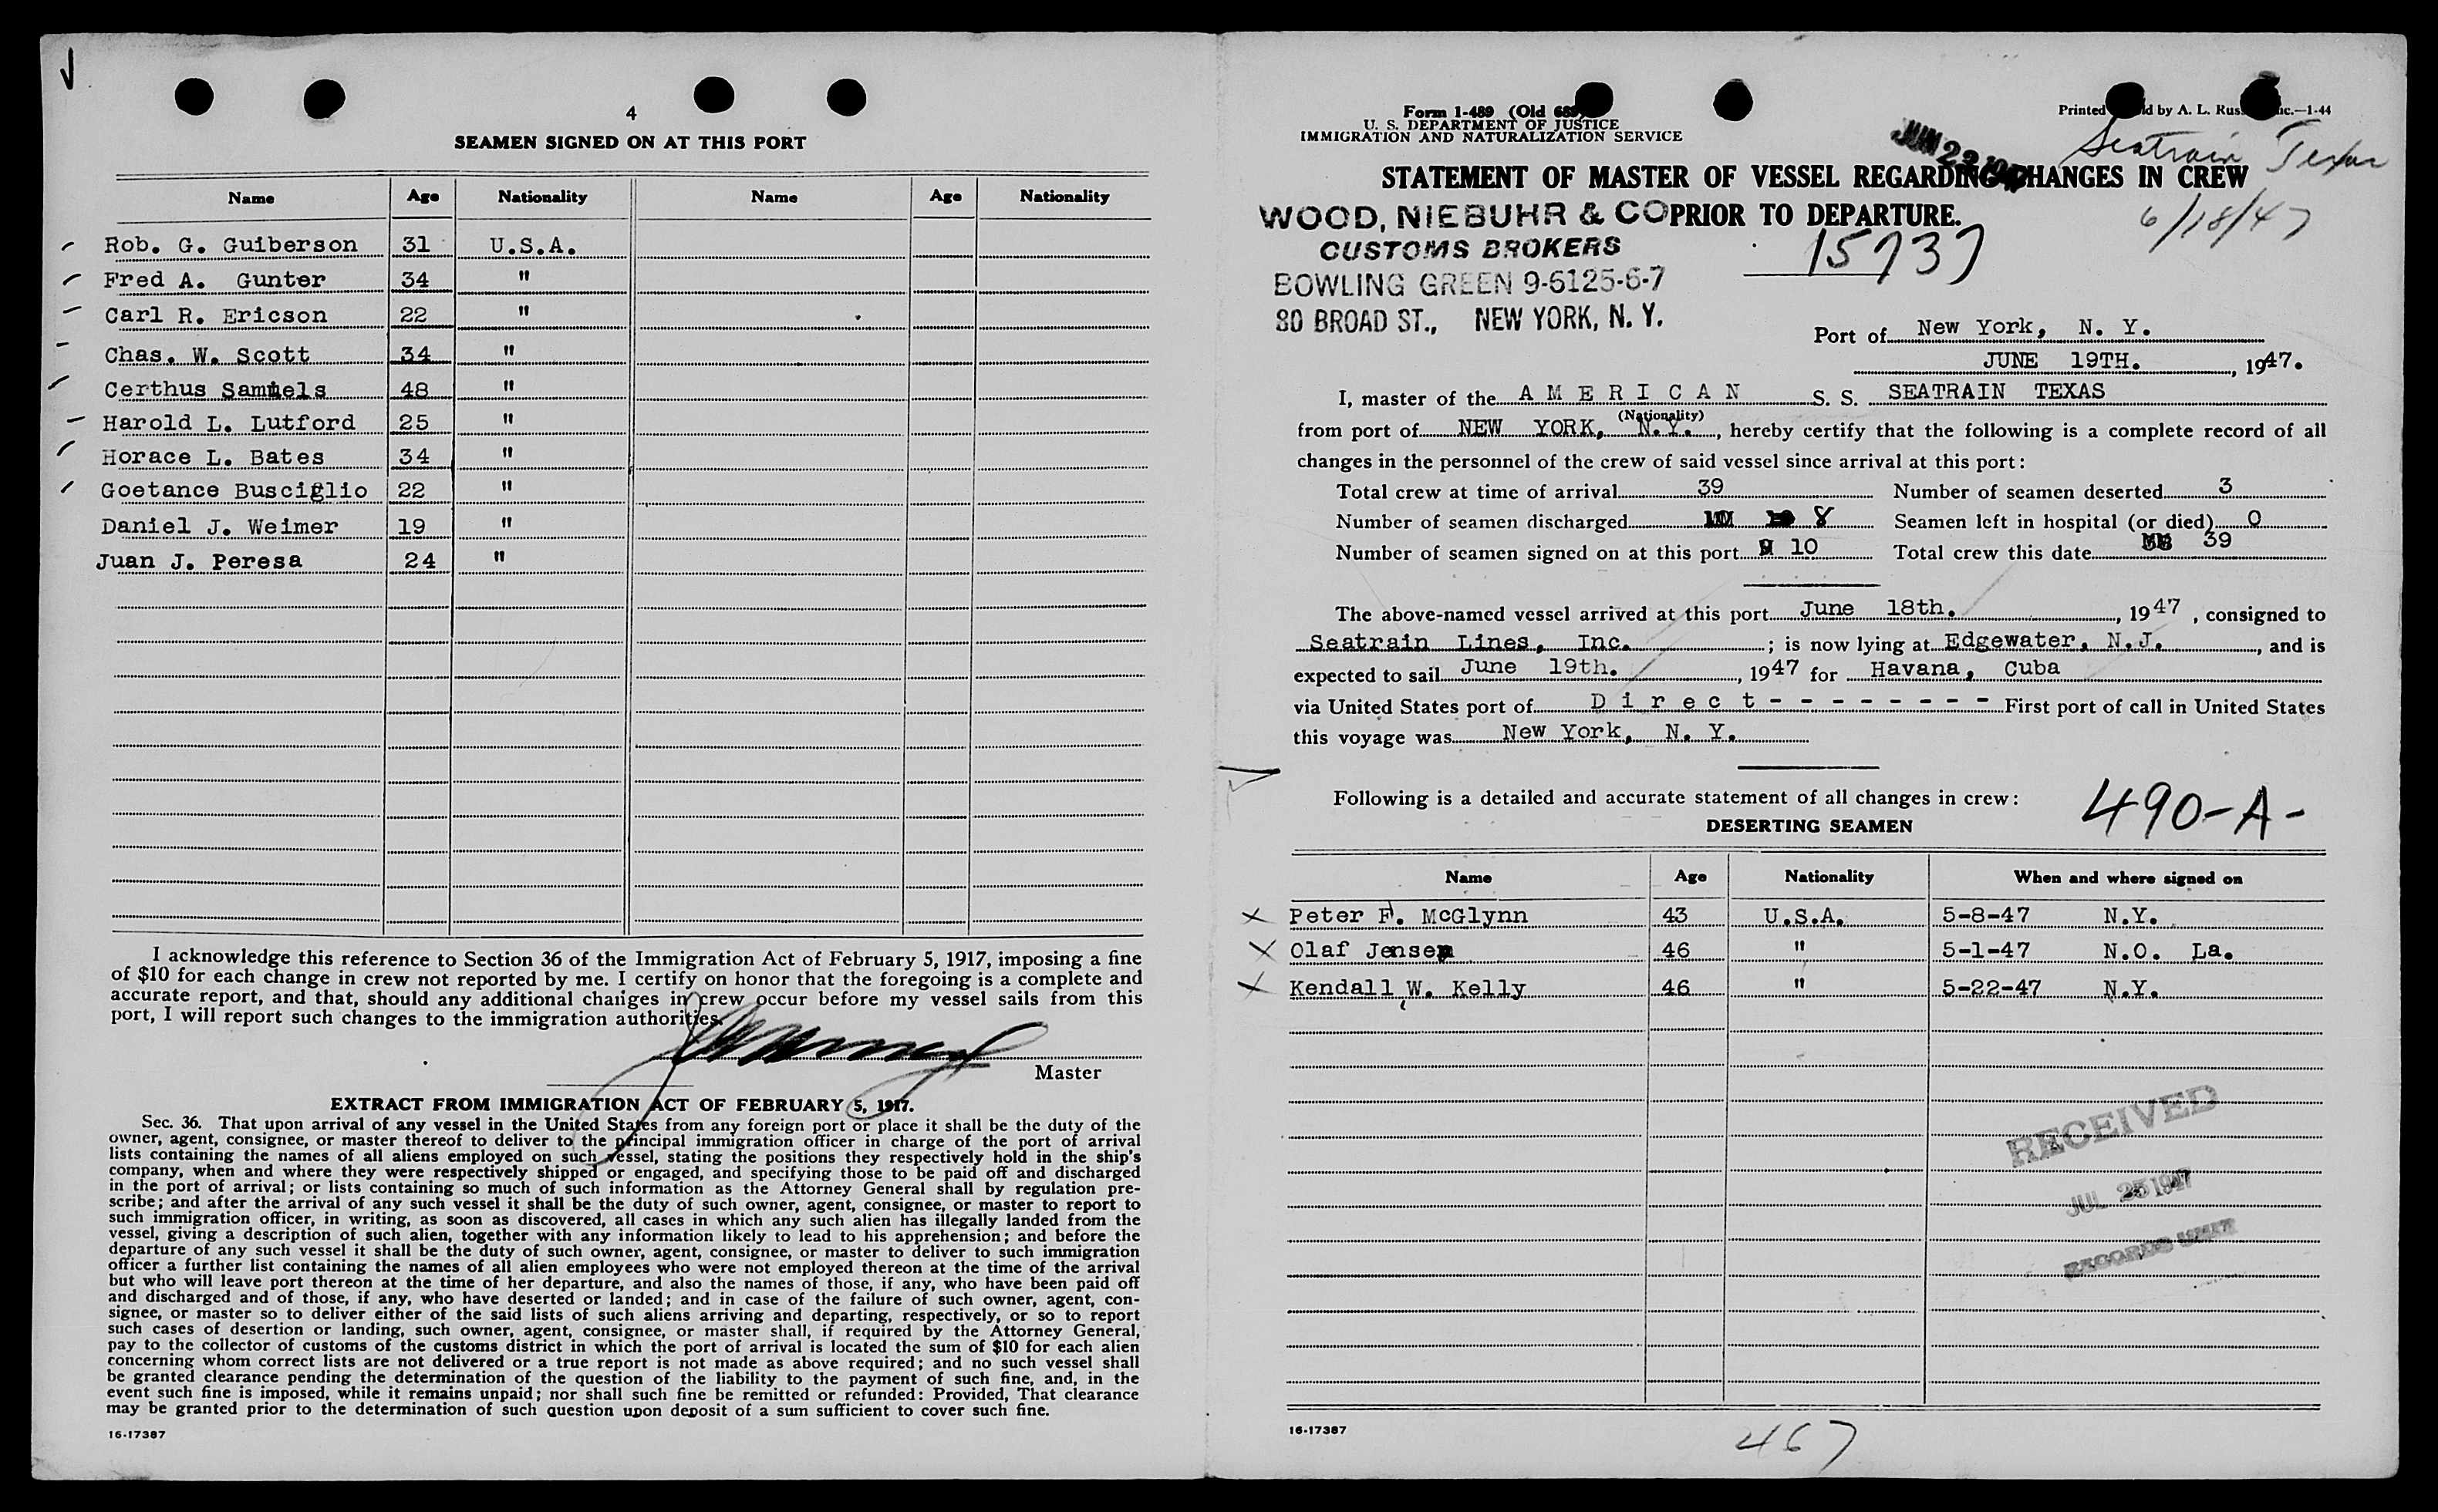 4
SEAMEN SIGNED ON AT THIS PORT
Name Age Nationality Name Age Nationality
Rob. G. Guiberson 31 U.S.A.
Fred A. Gunter 34 "
Carl R. Ericson 22 "
Chas. W. Scott 34 "
Certhus Sammels 48 "
Harold L. Lutford 25 "
Horace L. Bates 34 "
Goetance Busciglio 22 "
Daniel J. Weimer 19 "
Juan J. Peresa 24 "
I acknowledge this reference to Section 36 of the Immigration Act of February 5, 1917, imposing a fine
of $10 for each change in crew not reported by me. I certify on honor that the foregoing is a complete and
accurate report, and that, should any additional changes in crew occur before my vessel sails from this
port, I will report such changes to the immigration authorities.
Master
EXTRACT FROM IMMIGRATION ACT OF FEBRUARY 5, 1917.
Sec. 36. That upon arrival of any vessel in the United States from any foreign port or place it shall be the duty of the
owner, agent, consignee, or master thereof to deliver to the principal immigration officer in charge of the port of arrival
lists containing the names of all aliens employed on such vessel, stating the positions they respectively hold in the ship's
company, when and where they were respectively shipped or engaged, and specifying those to be paid off and discharged
in the port of arrival; or lists containing so much of such information as the Attorney General shall by regulation pre-
scribe; and after the arrival of any such vessel it shall be the duty of such owner, agent, consignee, or master to report to
such immigration officer, in writing, as soon as discovered, all cases in which any such alien has illegally landed from the
vessel, giving a description of such alien, together with any information likely to lead to his apprehension; and before the
departure of any such vessel it shall be the duty of such owner, agent, consignee, or master to deliver to such immigration
officer a further list containing the names of all alien employees who were not employed thereon at the time of the arrival
but who will leave port thereon at the time of her departure, and also the names of those, if any, who have been paid off
and discharged and of those, if any, who have deserted or landed; and in case of the failure of such owner, agent, con-
signee, or master so to deliver either of the said lists of such aliens arriving and departing, respectively, or so to report
such cases of desertion or landing, such owner, agent, consignee, or master shall, if required by the Attorney General,
pay to the collector of customs of the customs district in which the port of arrival is located the sum of $10 for each alien
concerning whom correct lists are not delivered or a true report is not made as above required; and no such vessel shall
be granted clearance pending the determination of the question of the liability to the payment of such fine, and, in the
event such fine is imposed, while it remains unpaid; nor shall such fine be remitted or refunded: Provided, That clearance
may be granted prior to the determination of such question upon deposit of a sum sufficient to cover such fine.
16-17387
Form I-489 (Old 689)
U. S. DEPARTMENT OF JUSTICE
IMMIGRATION AND NATURALIZATION SERVICE
Printed by A. L. Rus 1-44
Seatrain Texas
6/18/47
STATEMENT OF MASTER OF VESSEL REGARDING CHANGES IN CREW
PRIOR TO DEPARTURE.
WOOD, NIEBUHR & CO
CUSTOMS BROKERS
BOWLING GREEN 9-6125-6-7
80 BROAD ST., NEW YORK, N. Y.
15737
Port of New York, N. Y.
JUNE 19TH., 1947.
I, master of the AMERICAN S. S. SEATRAIN TEXAS
(Nationality)
from port of NEW YORK, N.Y., hereby certify that the following is a complete record of all
changes in the personnel of the crew of said vessel since arrival at this port:
Total crew at time of arrival 39 Number of seamen deserted 3
Number of seamen discharged 8 Seamen left in hospital (or died) 0
Number of seamen signed on at this port 10 Total crew this date 39
The above-named vessel arrived at this port June 18th., 1947, consigned to
Seatrain Lines, Inc.; is now lying at Edgewater, N.J., and is
expected to sail June 19th., 1947 for Havana, Cuba
via United States port of Direct - - - - - - - - First port of call in United States
this voyage was New York, N. Y.
Following is a detailed and accurate statement of all changes in crew:
490-A-
DESERTING SEAMEN
Name Age Nationality When and where signed on
Peter F. McGlynn 43 U.S.A. 5-8-47 N.Y.
Olaf Jensen 46 " 5-1-47 N.O. La.
Kendall W. Kelly 46 " 5-22-47 N.Y.
RECEIVED
JUL 25 1947
RECORDS UNIT
16-17387
467